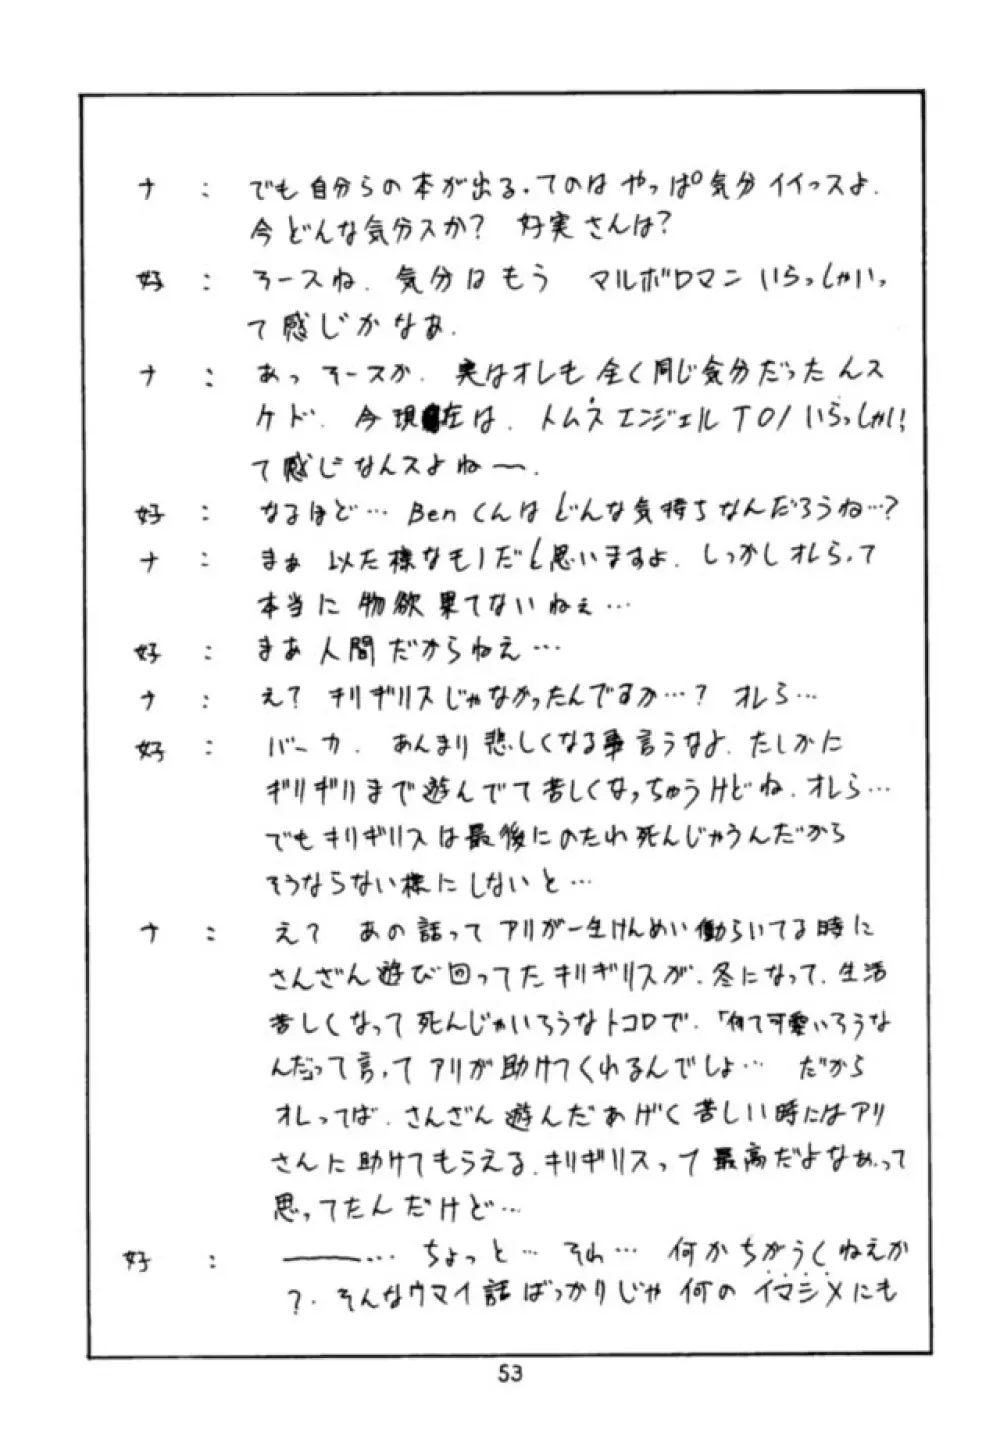 ナ : でも自分らの本が出る、てのはやっぱ気分イイっスよ.
今どんな気分スか? 好実さんは?
好 : そースね. 気分はもう マルボロマン いらっしゃいっ
て感じかなあ.
ナ : あっ そースか. 実はオレも全く同じ気分だったんス
ケド. 今現在は. トムスエンジェルT01いらっしゃいっ
て感じなんスよねー.
好 : なるほど… Benくんはどんな気持ちなんだろうね…?
ナ : まぁ 以た様なモノだと思いますよ. しかしオレらって
本当に 物欲果てないねぇ…
好 : まあ人間だからねえ…
ナ : え? キリギリスじゃなかったんですか…? オレら…
好 : バーカ. あんまり悲しくなる事言うなよ. たしかに
ギリギリまで遊んでて苦しくなっちゃうけどね. オレら…
でもキリギリスは最後にのたれ死んじゃうんだから
そうならない様にしないと…
ナ : え? あの話ってアリが一生けんめい働らいてる時に
さんざん遊び回ってたキリギリスが. 冬になって. 生活
苦しくなって死んじゃいそうなトコロで.「何て可愛いそうな
んだって言ってアリが助けてくれるんでしょ… だから
オレってば. さんざん遊んだあげく苦しい時にはアリ
さんに助けてもらえる. キリギリスって最高だよなあって
思ってたんだけど…
好 : ――… ちょっと… それ… 何かちがうくねえか
?. そんなウマイ話ばっかりじゃ何のイマシメにも
53